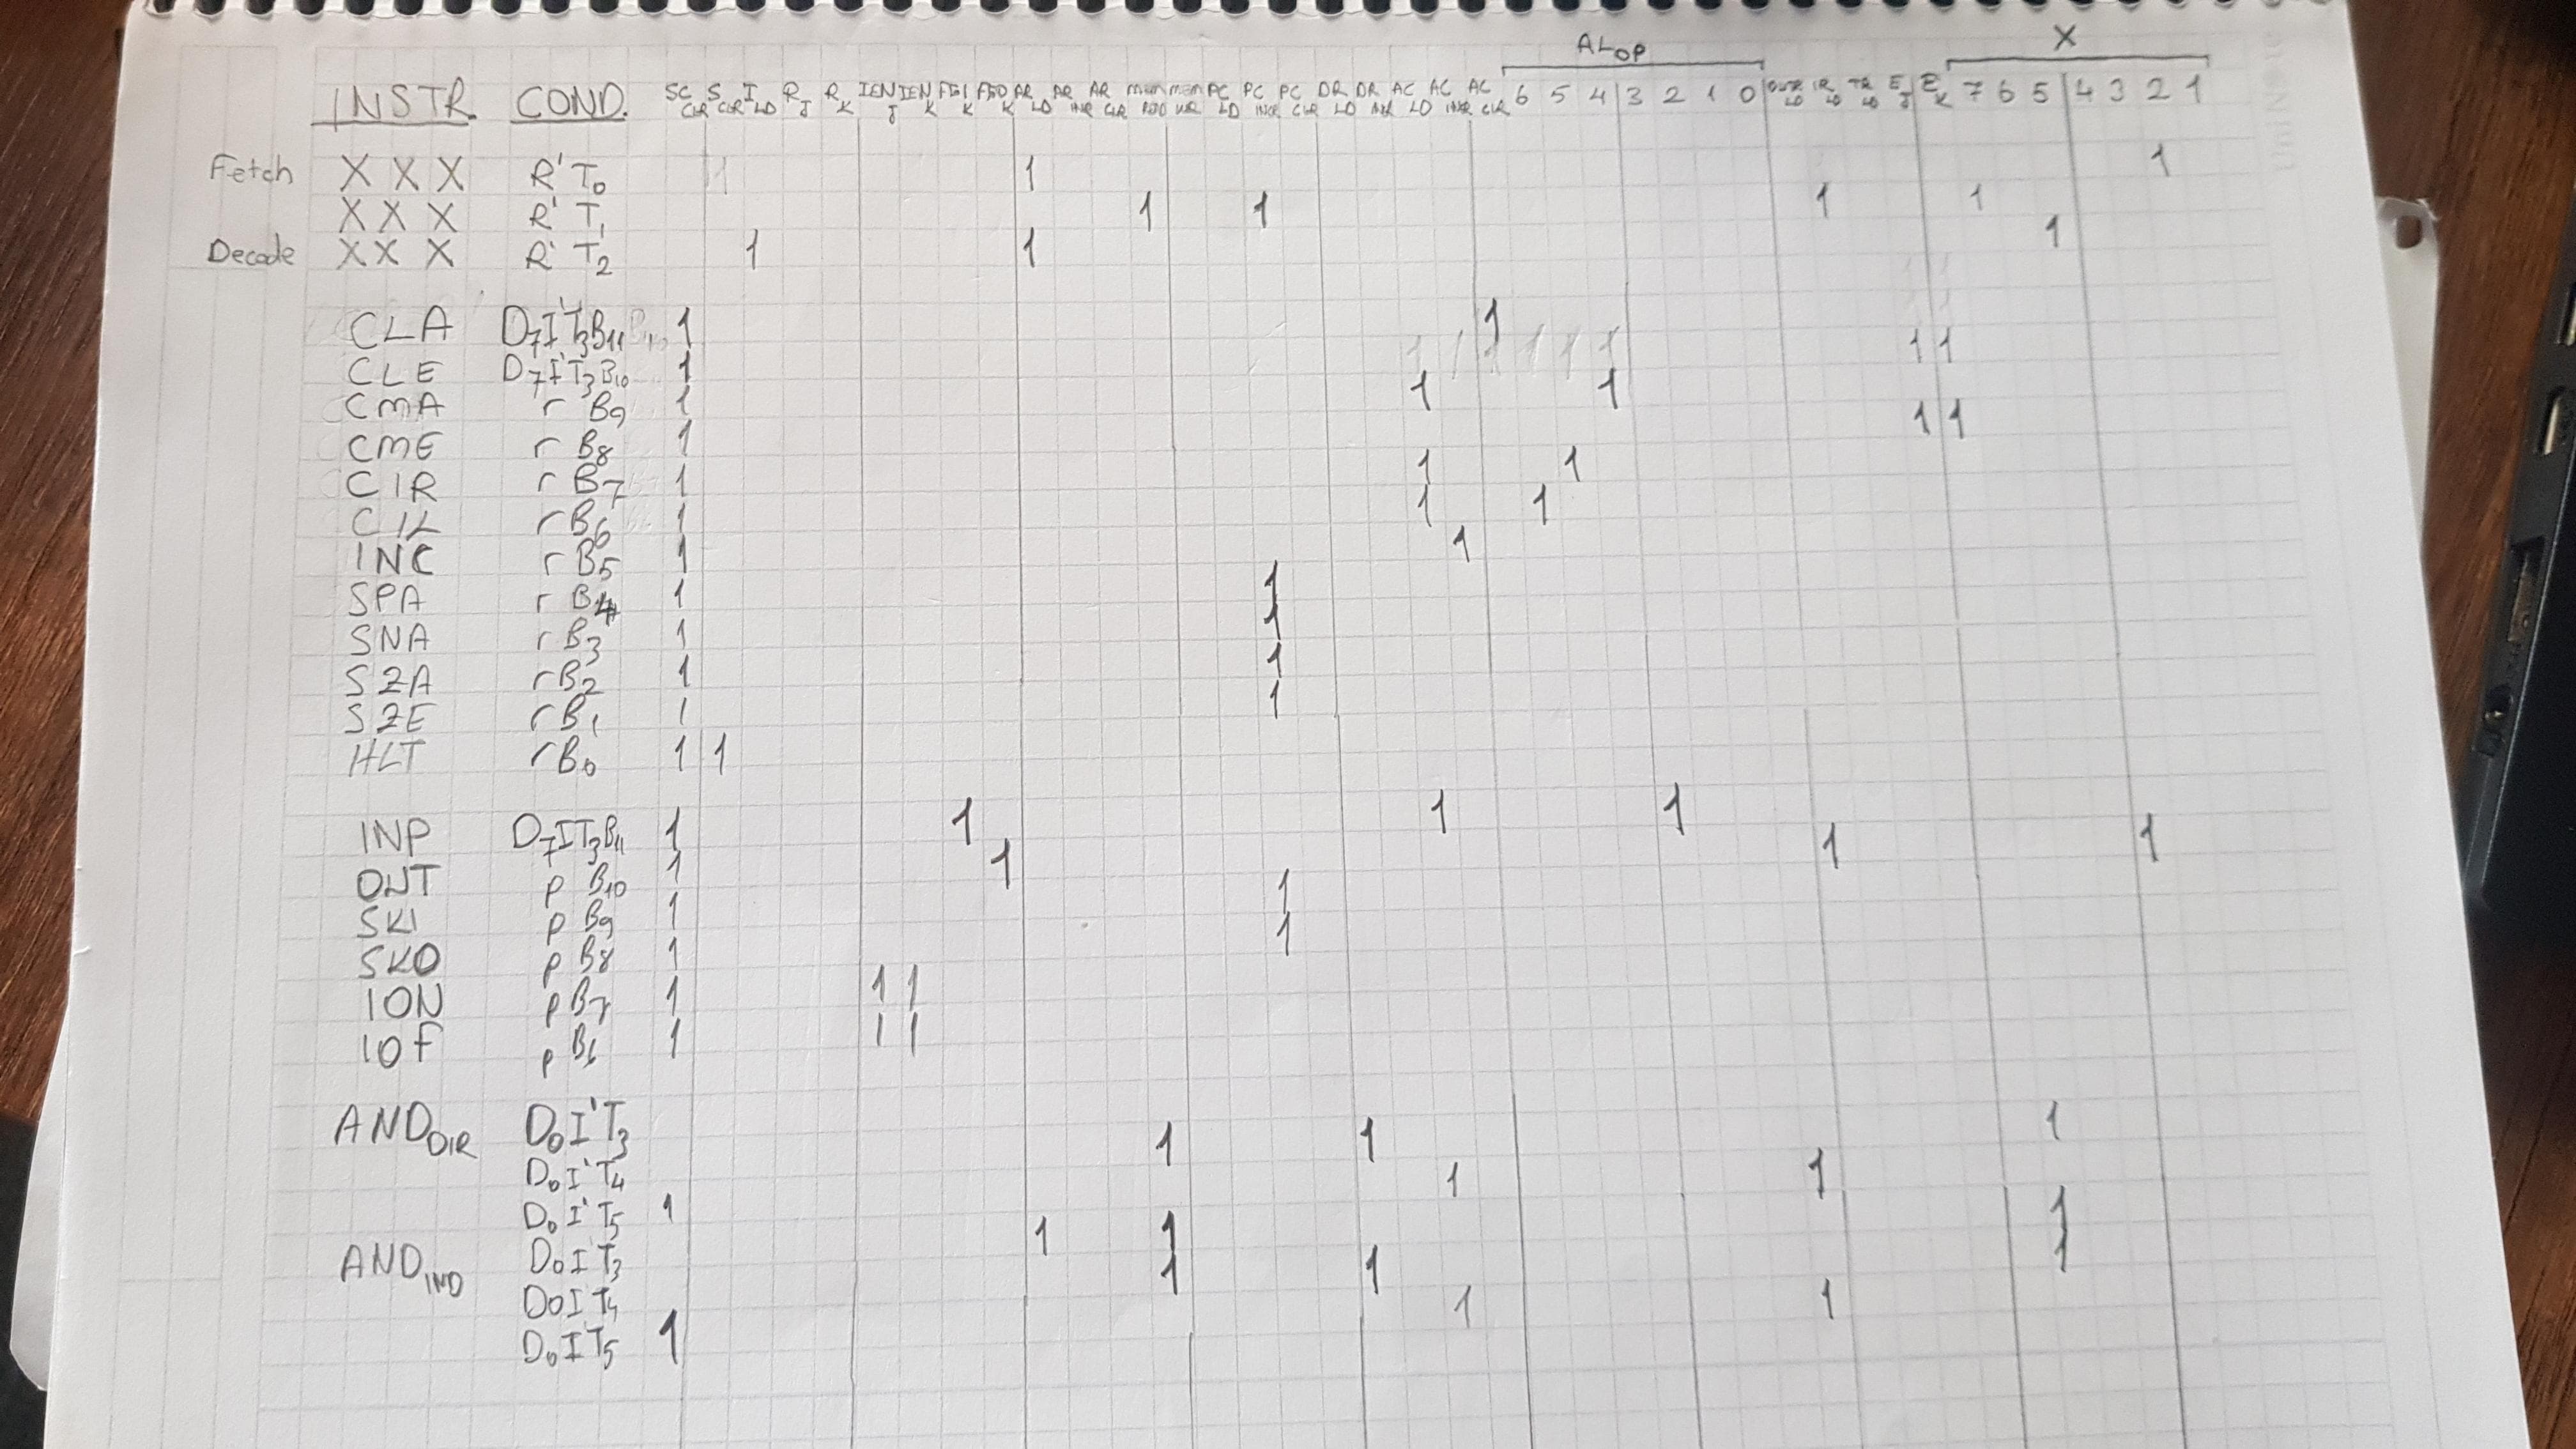 AL OP X
INSTR. COND. SC CLR S CLR I LD R J R K IEN J IEN K FGI K FGO K AR LD AR INR AR CLR mem RDD mem WR PC LD PC INCR PC CLR DR LD DR INR AC LD AC INCR AC CLR 6 5 4 3 2 1 0 OUTR LD IR LD TR LD E J E K 7 6 5 4 3 2 1
Fetch X X X R' T0 1 1
X X X R' T1 1 1 1 1
Decode X X X R' T2 1 1 1
CLA D7I'T3B11 1 1
CLE D7I'T3B10 1 1 1
CMA r B9 1 1 1
CME r B8 1 1 1
CIR r B7 1 1 1
CIL r B6 1 1 1
INC r B5 1 1
SPA r B4 1 1
SNA r B3 1 1
SZA r B2 1 1
SZE r B1 1 1
HLT r B0 1 1
INP D7IT3B11 1 1 1 1
OUT p B10 1 1 1 1
SKI p B9 1 1
SKO p B8 1 1
ION p B7 1 1 1
IOF p B6 1 1 1
AND DIR D0I'T3 1 1 1
D0I'T4 1 1
D0I'T5 1
AND IND D0IT3 1 1 1
D0IT4 1 1 1
D0IT5 1 1 1